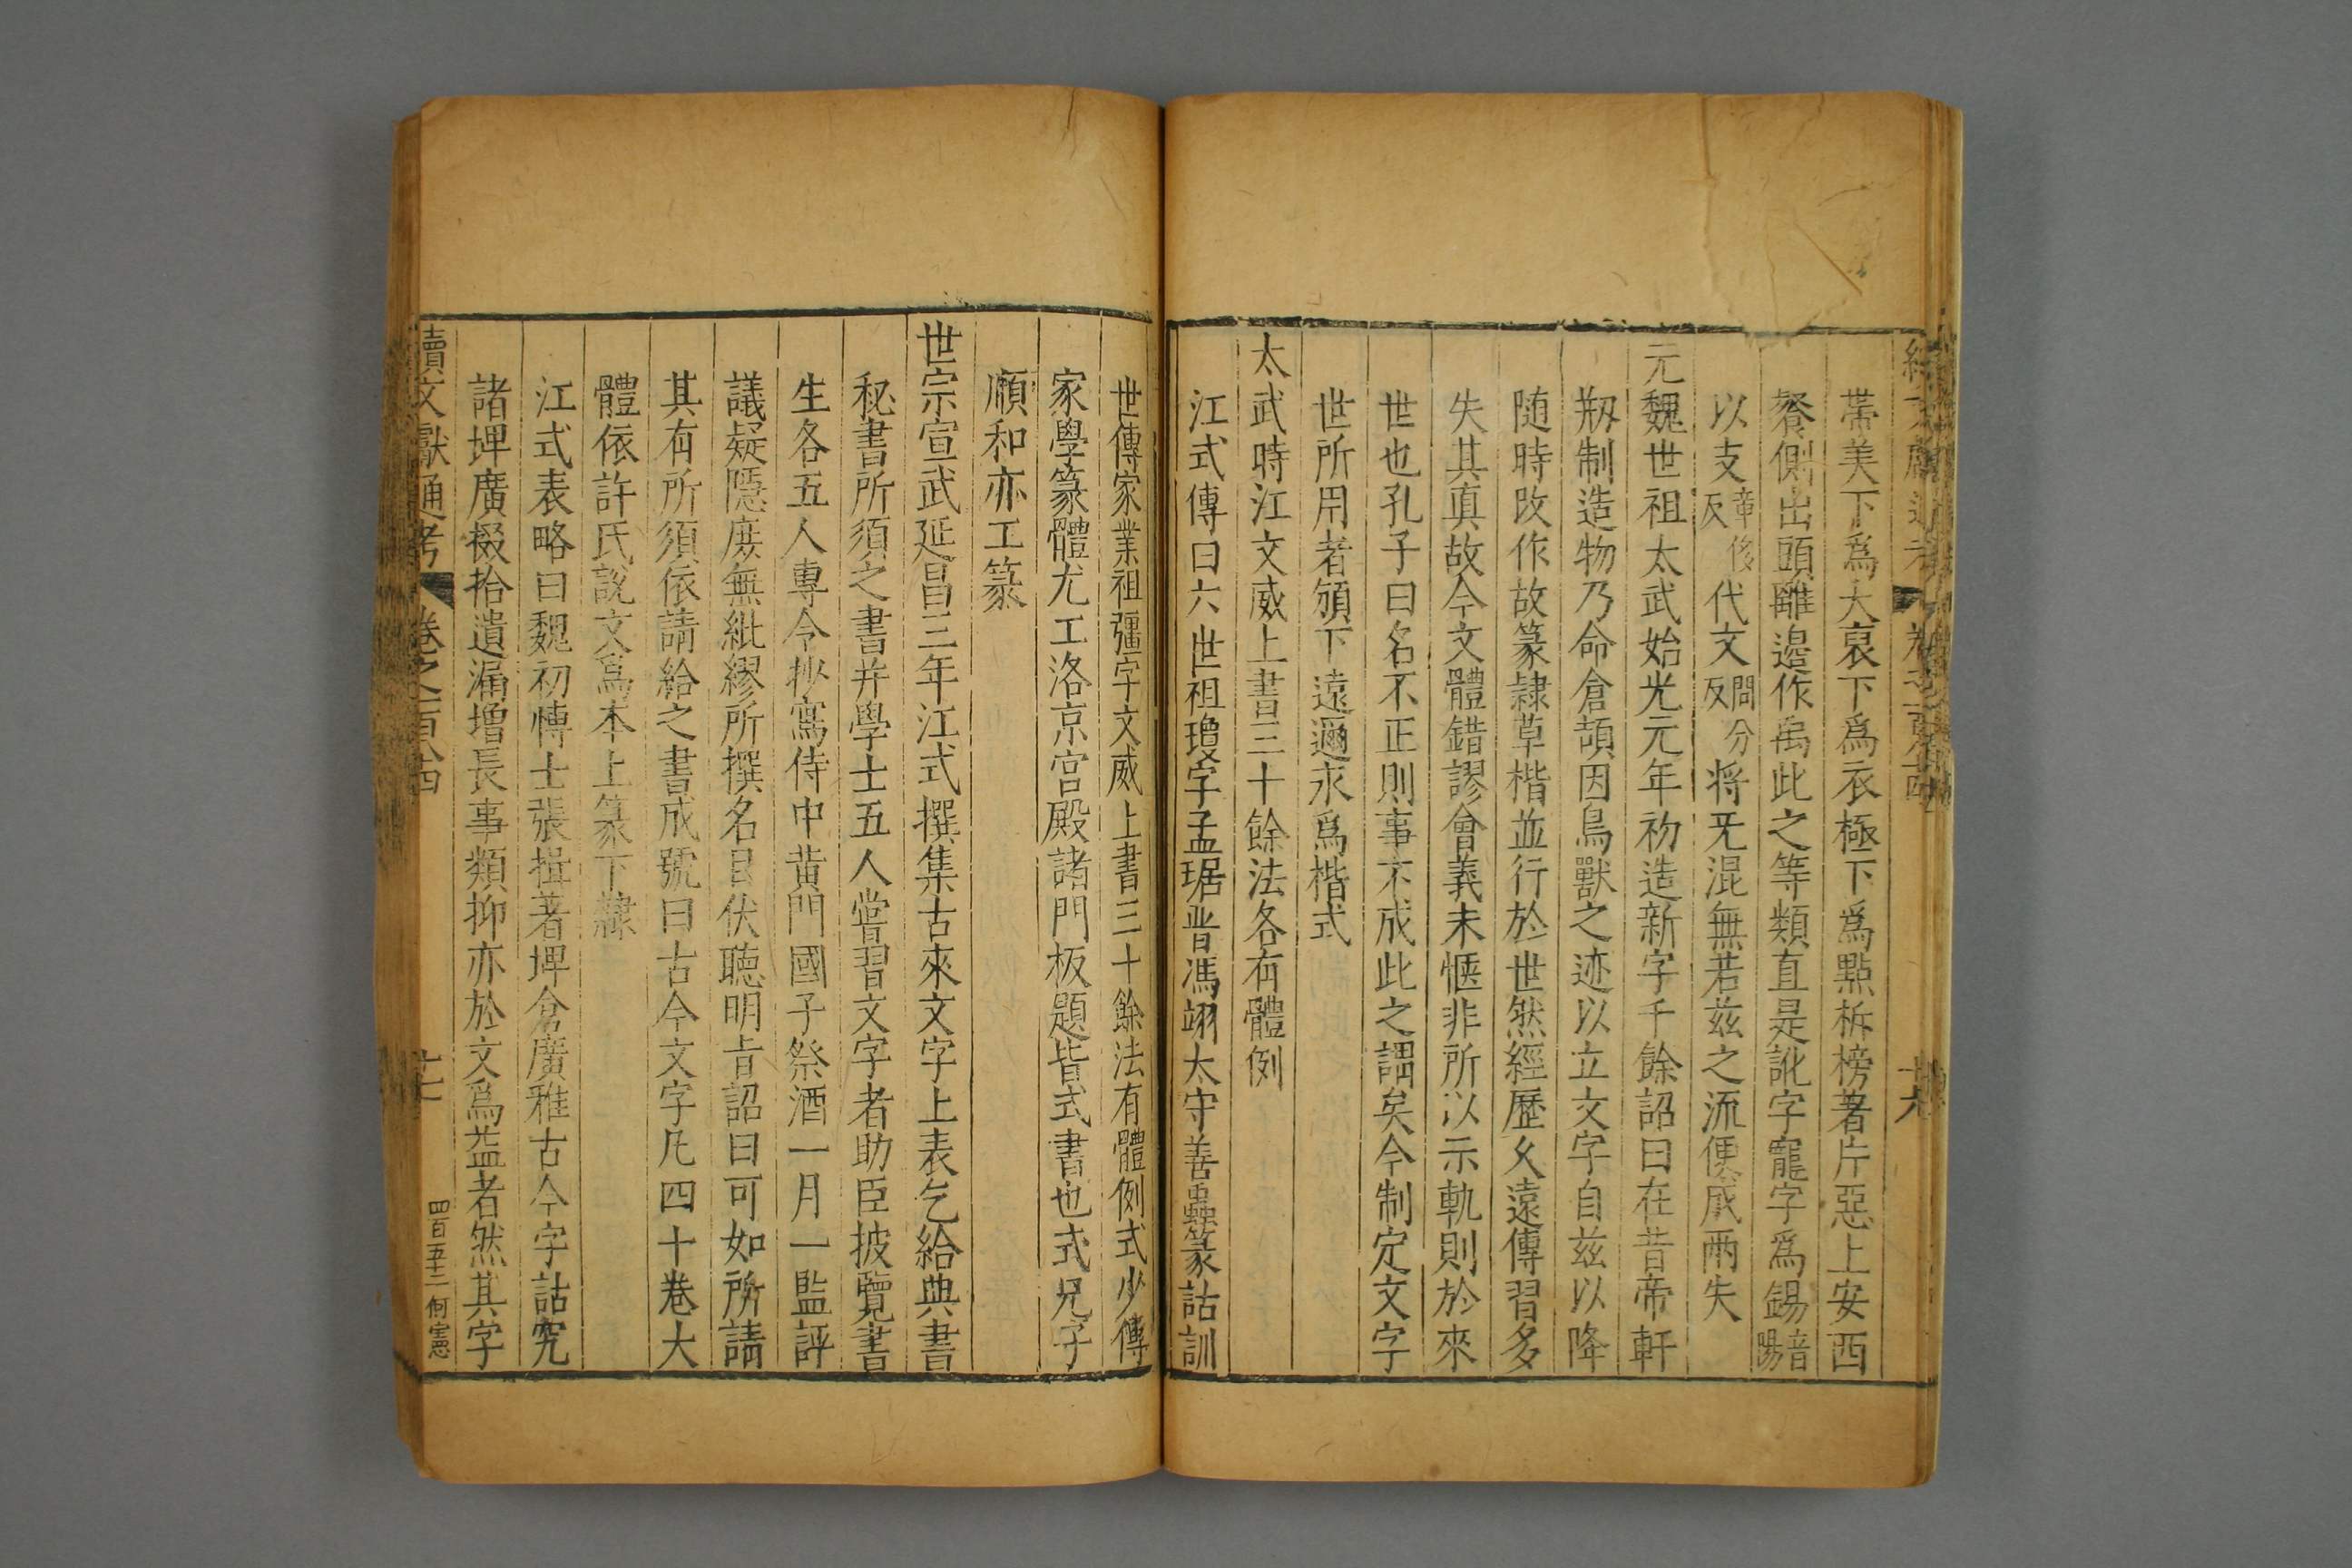 續文獻通考 卷之一百八十四 十六
帶美下爲大裏下爲衣極下爲點柝榜著片惡上安西
餐側出頭離邊作禹此之等類直是訛字寵字爲錫音陽
以支章移反代文問分反将无混無若兹之流便成兩失
元魏世祖太武始光元年初造新字千餘詔曰在昔帝軒
刱制造物乃命倉頡因鳥獸之迹以立文字自兹以降
随時改作故篆隸草楷並行於世然經歷久遠傳習多
失其真故令文體錯謬會義未愜非所以示軌則於來
世也孔子曰名不正則事不成此之謂矣今制定文字
世所用者頒下遠邇永爲楷式
太武時江文威上書三十餘法各有體例
江式傳曰六世祖瓊字孟琚晋馮翊太守善蟲篆詁訓
世傳家業祖彊字文威上書三十餘法有體例式少傳
家學篆體尤工洛京宫殿諸門板題皆式書也式兄子
順和亦工篆
世宗宣武延昌三年江式撰集古來文字上表乞給典書
秘書所須之書并學士五人嘗習文字者助臣披覽書
生各五人專令抄寫侍中黄門國子祭酒一月一監評
議疑隱庶無紕繆所撰名目伏聽明旨詔曰可如所請
其有所須依請給之書成號曰古今文字凡四十卷大
體依許氏說文爲本上篆下隸
江式表略曰魏初博士張揖著埤倉廣雅古今字詁究
諸埤廣掇拾遺漏增長事類抑亦於文爲益者然其字
續文獻通考 卷之一百八十四 十七 四百五十二 何憲